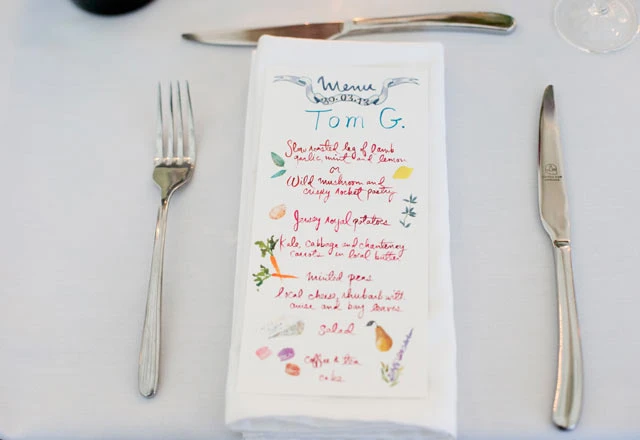 Menu
30.03.13
Tom G.
Slow roasted leg of lamb
garlic mint and lemon
or
Wild mushroom and
crispy rocket pastry
Jersey royal potatoes
Kale, cabbage and chanteney
carrots in local butter
minted peas
local cheese, rhubarb with
anise and bay leaves
salad
coffee & tea
cake